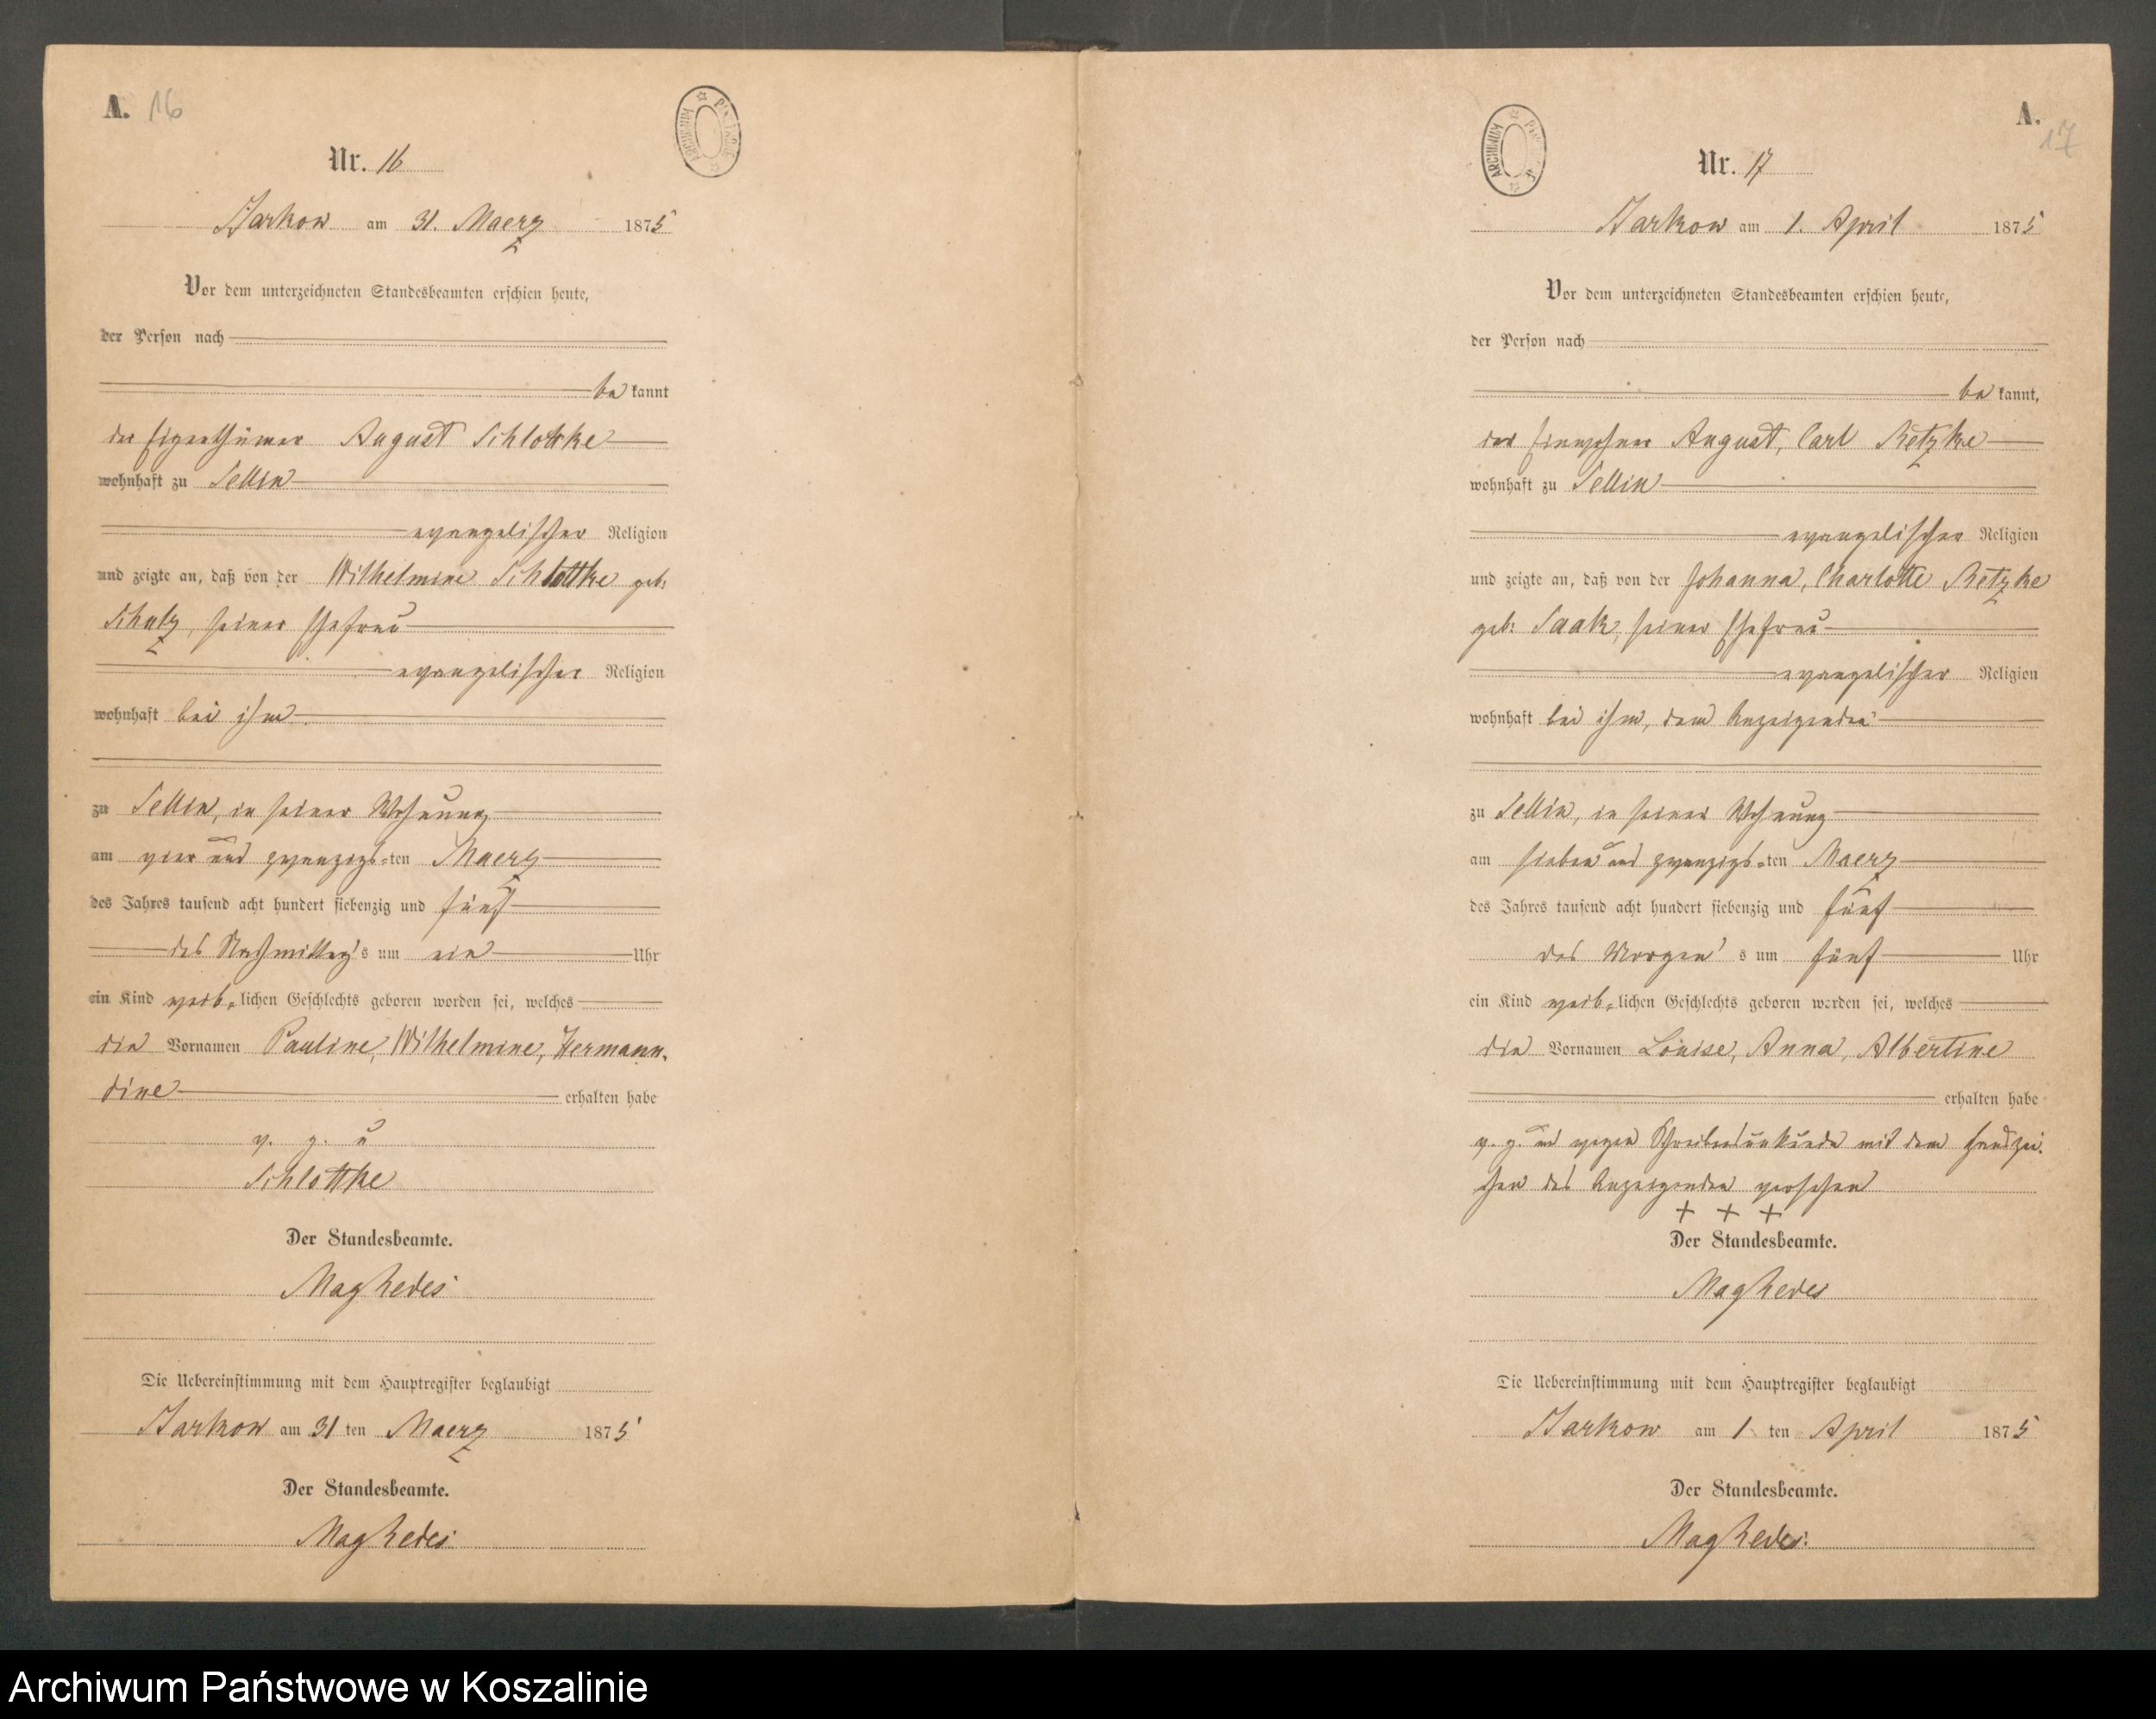 A. 16
ARCHIWUM
Nr. 16
Barkow am 31. Maerz 1875
Vor dem unterzeichneten Standesbeamten erschien heute,
der Person nach
be kannt
der Eigenthümer August Schlottke
wohnhaft zu Sellin
evangelischer Religion
und zeigte an, daß von der Wilhelmine Schlottke geb:
Schulz, seiner Ehefrau
evangelischer Religion
wohnhaft bei ihm
zu Sellin, in seiner Wohnung
am vier und zwanzigs-ten Maerz
des Jahres tausend acht hundert siebenzig und fünf
des Nachmittag's um ein Uhr
ein Kind weib-lichen Geschlechts geboren worden sei, welches
die Vornamen Pauline, Wilhelmine, Hermann-
dine erhalten habe
v. g. u
Schlottke
Der Standesbeamte.
Die Uebereinstimmung mit dem Hauptregister beglaubigt
Barkow am 31 ten Maerz 1875
Der Standesbeamte.
A.
17
ARCHIWUM
Nr. 17
Barkow am 1. April 1875
Vor dem unterzeichneten Standesbeamten erschien heute,
der Person nach
be kannt,
der Einwohner August, Carl Retzke
wohnhaft zu Sellin
evangelischer Religion
und zeigte an, daß von der Johanna, Charlotte Retzke
geb: Saak, seiner Ehefrau
evangelischer Religion
wohnhaft bei ihm, dem Anzeigenden
zu Sellin, in seiner Wohnung
am sieben und zwanzigs-ten Maerz
des Jahres tausend acht hundert siebenzig und fünf
des Morgen's um fünf Uhr
ein Kind weib-lichen Geschlechts geboren worden sei, welches
die Vornamen Louise, Anna, Albertine
erhalten habe
v. g. und wegen Schreibensunkunde mit dem Handzei-
chen des Anzeigenden versehen
+ + +
Der Standesbeamte.
Die Uebereinstimmung mit dem Hauptregister beglaubigt
Barkow am 1 ten April 1875
Der Standesbeamte.
Archiwum Państwowe w Koszalinie